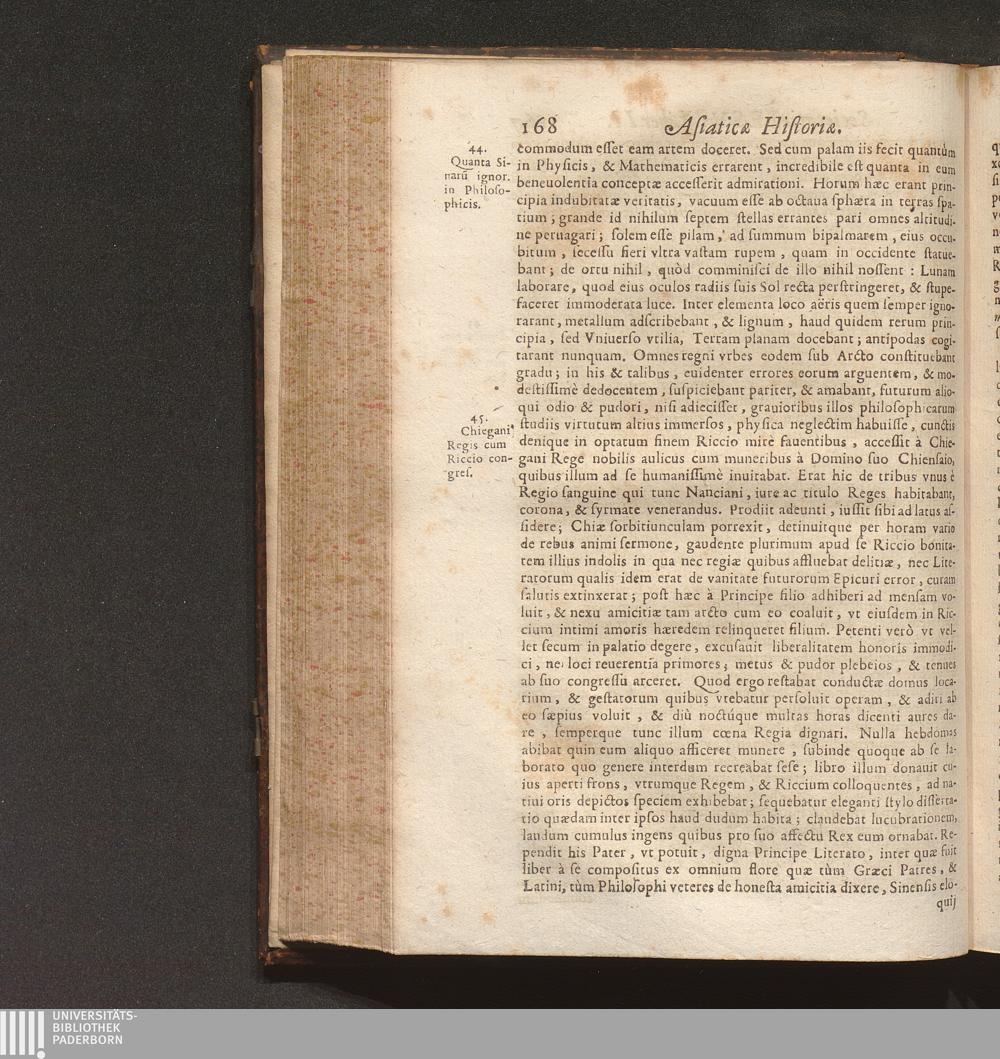 168 Asiaticæ Historiæ.
44.
Quanta Si-
narū ignor.
in Philoso-
phicis.
commodum esset eam artem doceret. Sed cum palam iis fecit quantùm
in Physicis, & Mathematicis errarent, incredibile est quanta in eum
beneuolentia conceptæ accesserit admirationi. Horum hæc erant prin-
cipia indubitatæ veritatis, vacuum esse ab octaua sphæra in terras spa-
tium; grande id nihilum septem stellas errantes pari omnes altitudi-
ne peruagari; solem esse pilam, ad summum bipalmarem, eius occu-
bitum, secessu fieri vltra vastam rupem, quam in occidente statue-
bant; de ortu nihil, quòd comminisci de illo nihil nossent: Lunam
laborare, quod eius oculos radiis suis Sol recta perstringeret, & stupe-
faceret immoderata luce. Inter elementa loco aëris quem semper igno-
rarant, metallum adscribebant, & lignum, haud quidem rerum prin-
cipia, sed Vniuerso vtilia, Terram planam docebant; antipodas cogi-
tarant nunquam. Omnes regni vrbes eodem sub Arcto constituebant
gradu; in his & talibus, euidenter errores eorum arguentem, & mo-
destissimè dedocentem, suspiciebant pariter, & amabant, futurum alio-
qui odio & pudori, nisi adiecisset, grauioribus illos philosophicarum
45.
Chiegani
Regis cum
Riccio con-
gres.
studiis virtutum altius immersos, physica neglectim habuisse, cunctis
denique in optatum finem Riccio mirè fauentibus, accessit à Chie-
gani Rege nobilis aulicus cum muneribus à Domino suo Chiensaio,
quibus illum ad se humanissimè inuitabat. Erat hic de tribus vnus è
Regio sanguine qui tunc Nanciani, iure ac titulo Reges habitabant,
corona, & syrmate venerandus. Prodiit adeunti, iussit sibi ad latus as-
sidere; Chiæ sorbitiunculam porrexit, detinuitque per horam vario
de rebus animi sermone, gaudente plurimum apud se Riccio bonita-
tem illius indolis in qua nec regiæ quibus affluebat delitiæ, nec Lite-
ratorum qualis idem erat de vanitate futurorum Epicuri error, curam
salutis extinxerat; post hæc à Principe filio adhiberi ad mensam vo-
luit, & nexu amicitiæ tam arcto cum eo coaluit, vt eiusdem in Ric-
cium intimi amoris hæredem relinqueret filium. Petenti verò vt vel-
let secum in palatio degere, excusauit liberalitatem honoris immodi-
ci, nei loci reuerentia primores; metus & pudor plebeios, & tenues
ab suo congressu arceret. Quod ergo restabat conductæ domus loca-
rium, & gestatorum quibus vtebatur persoluit operam, & aditi ab
eo sæpius voluit, & diù noctúque multas horas dicenti aures da-
re, semperque tunc illum cœna Regia dignari. Nulla hebdomas
abibat quin eum aliquo afficeret munere, subinde quoque ab se la-
borato quo genere interdum recreabat sese; libro illum donauit cu-
ius aperti frons, vtrumque Regem, & Riccium colloquentes, ad na-
tiui oris depictos speciem exhibebat; sequebatur eleganti stylo disserta-
tio quædam inter ipsos haud dudum habita; claudebat lucubrationem,
laudum cumulus ingens quibus pro suo affectu Rex eum ornabat. Re-
pendit his Pater, vt potuit, digna Principe Literato, inter quæ fuit
liber à se compositus ex omnium flore quæ tùm Græci Patres, &
Latini, tùm Philosophi veteres de honesta amicitia dixere, Sinensis elo-
quij
UNIVERSITÄTS-
BIBLIOTHEK
PADERBORN